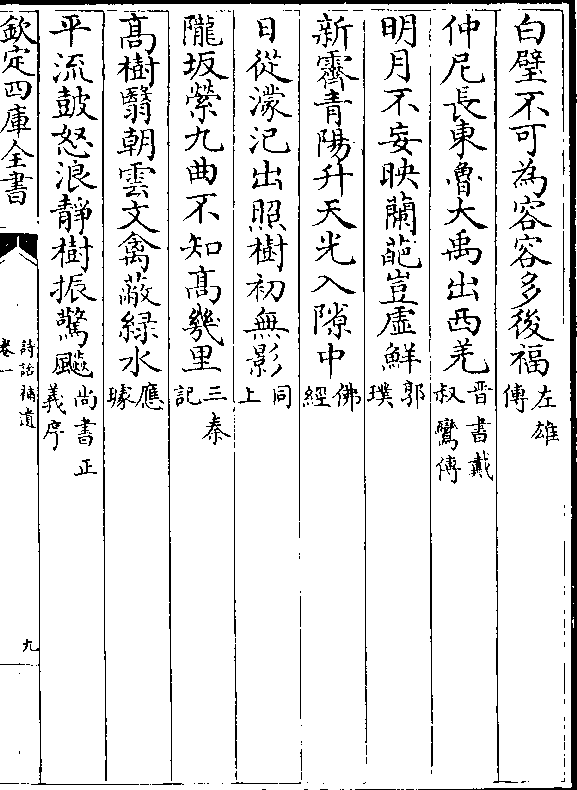 白璧不可為容容多後福左雄傳
仲尼長東魯大禹出西羌晉書戴叔鸞傳
明月不妄映蘭葩豈虛鮮郭璞
新霽青陽升天光入隙中佛經
日從濛汜出照樹初無影同上
隴坂縈九曲不知髙幾里三秦記
髙樹翳朝雲文禽蔽綠水應璩
平流鼓怒浪靜樹振驚飈尚書正義序
欽定四庫全書
詩話補遺
卷一
九